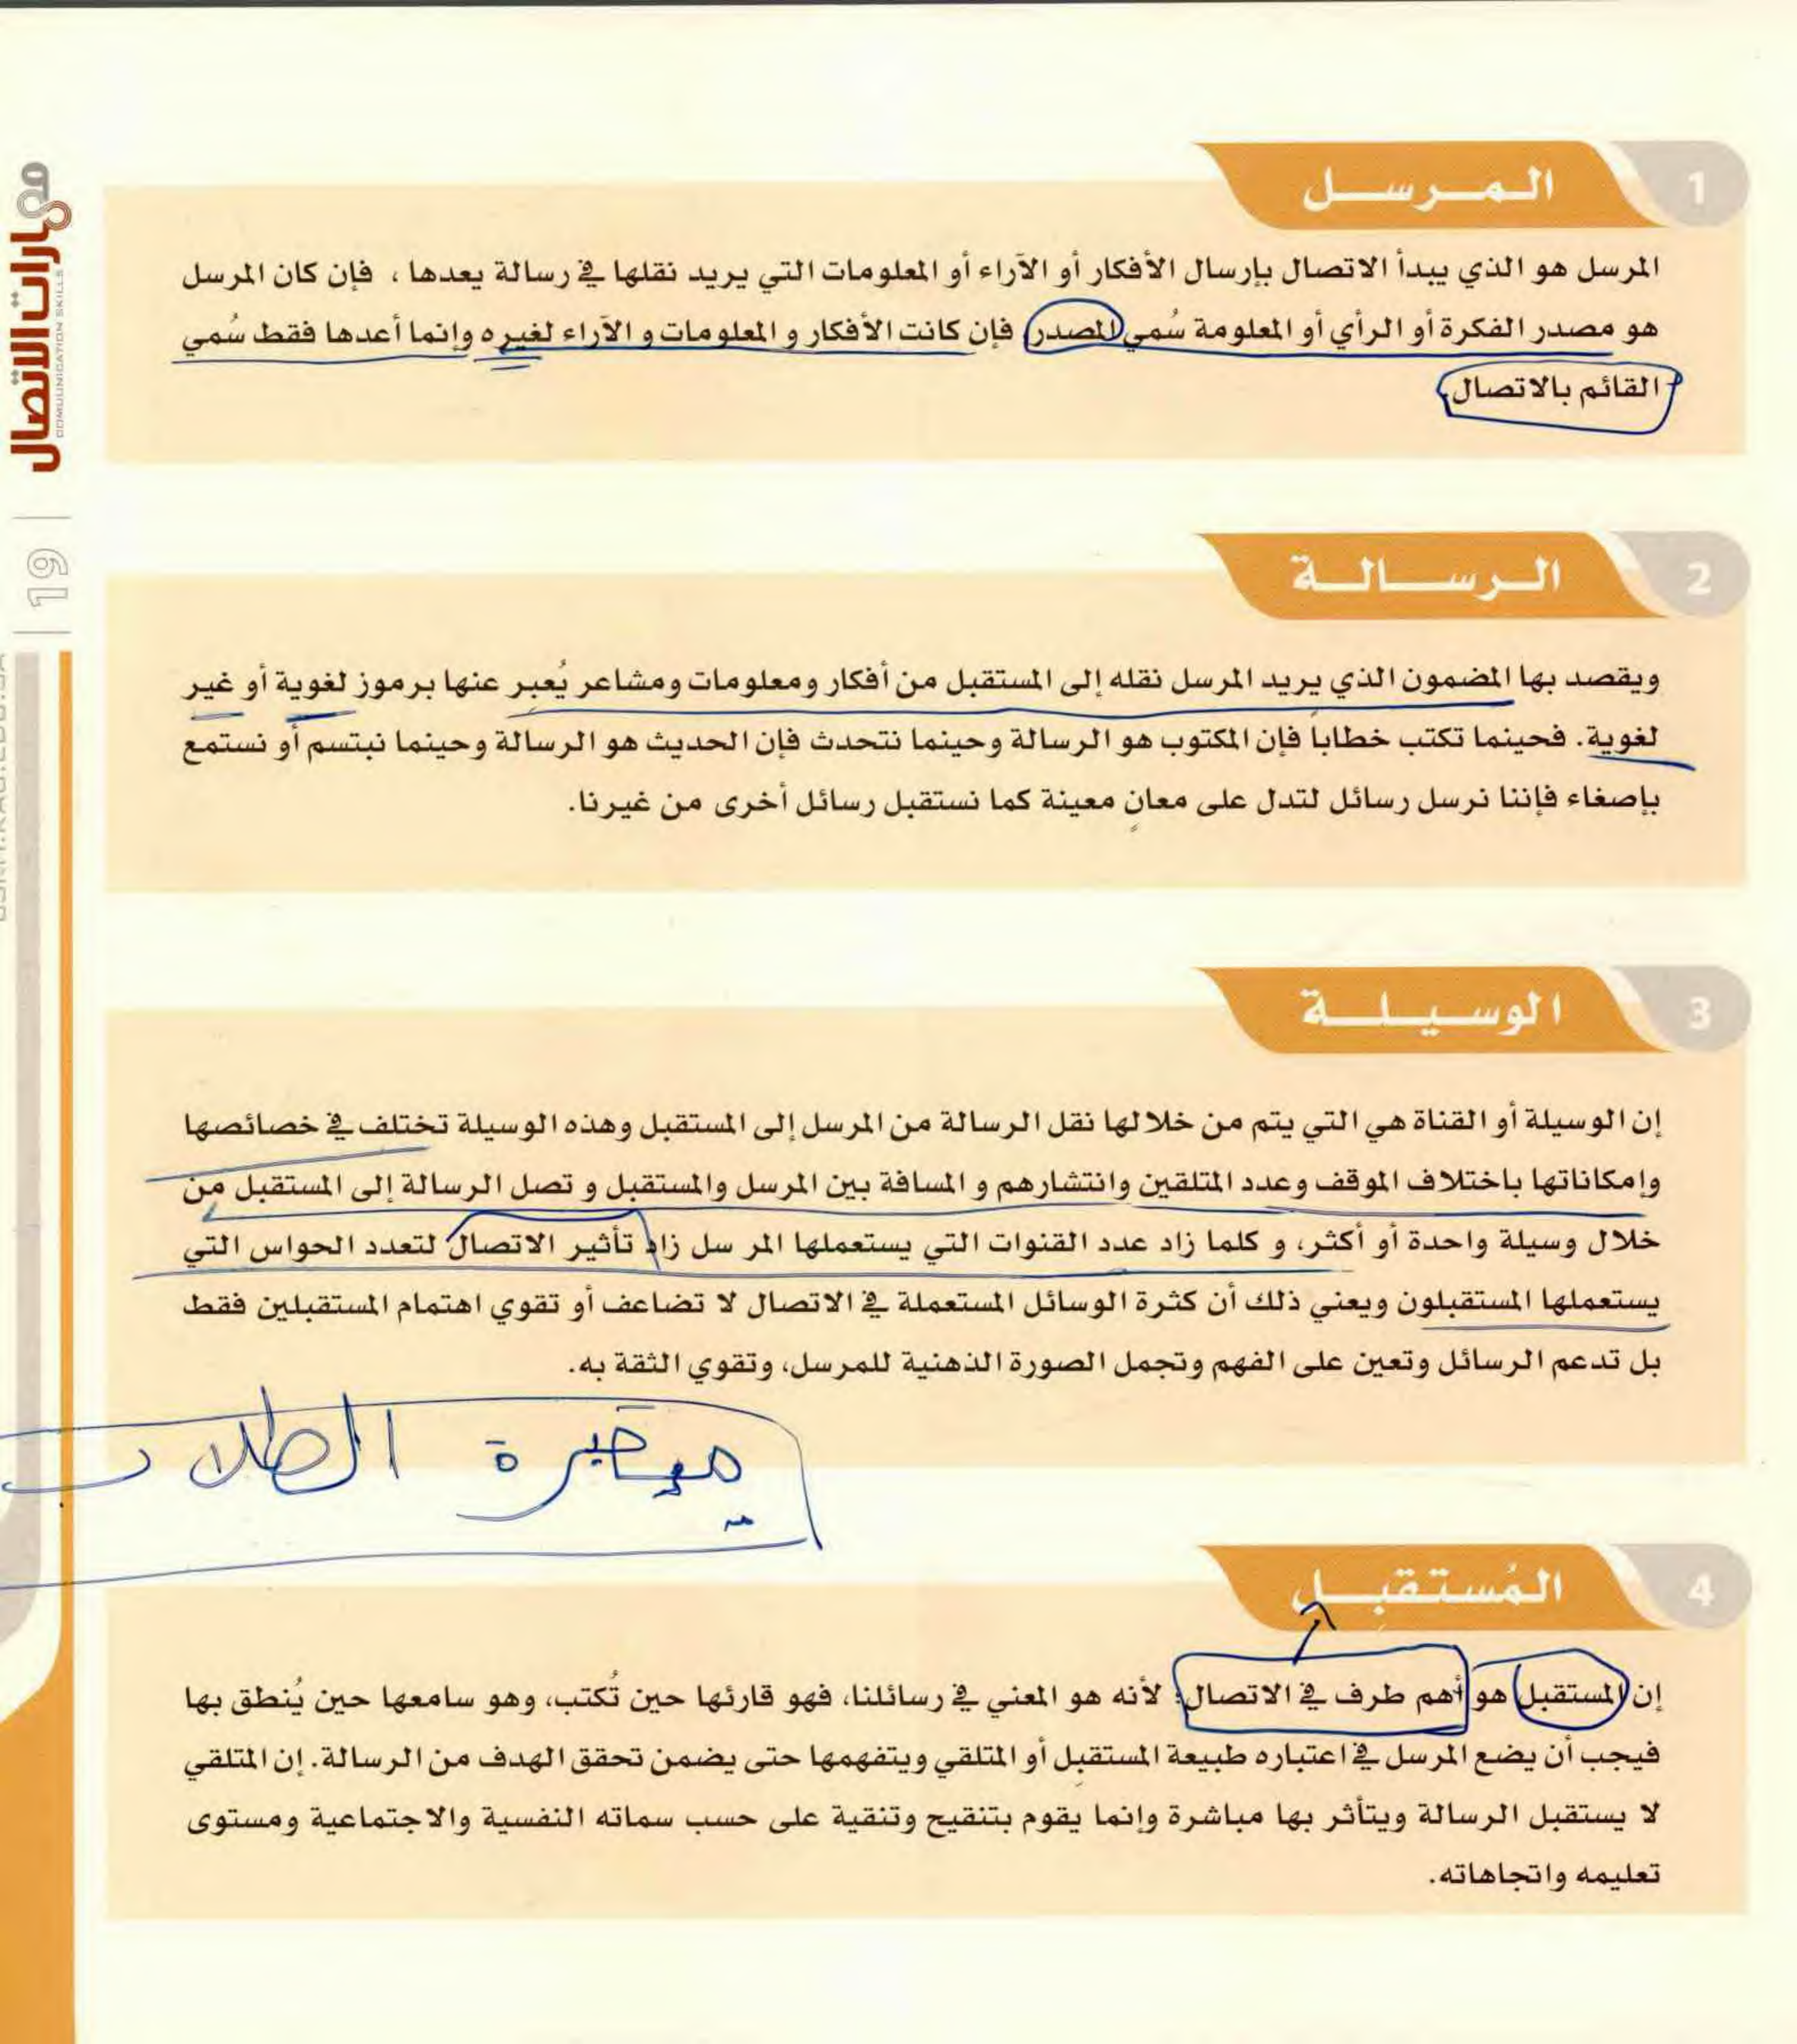 مهارات الاتصال
COMMUNICATION SKILLS
19
1
المرسل
المرسل هو الذي يبدأ الاتصال بإرسال الأفكار أو الآراء أو المعلومات التي يريد نقلها في رسالة يعدها ، فإن كان المرسل
هو مصدر الفكرة أو الرأي أو المعلومة سُمي المصدر، فإن كانت الأفكار و المعلومات و الآراء لغيره وإنما أعدها فقط سُمي
القائم بالاتصال.
2
الرسالة
ويقصد بها المضمون الذي يريد المرسل نقله إلى المستقبل من أفكار ومعلومات ومشاعر يُعبر عنها برموز لغوية أو غير
لغوية. فحينما تكتب خطاباً فإن المكتوب هو الرسالة وحينما نتحدث فإن الحديث هو الرسالة وحينما نبتسم أو نستمع
بإصغاء فإننا نرسل رسائل لتدل على معانٍ معينة كما نستقبل رسائل أخرى من غيرنا.
3
الوسيلة
إن الوسيلة أو القناة هي التي يتم من خلالها نقل الرسالة من المرسل إلى المستقبل وهذه الوسيلة تختلف في خصائصها
وإمكاناتها باختلاف الموقف وعدد المتلقين وانتشارهم و المسافة بين المرسل والمستقبل و تصل الرسالة إلى المستقبل من
خلال وسيلة واحدة أو أكثر، و كلما زاد عدد القنوات التي يستعملها المر سل زاد تأثير الاتصال لتعدد الحواس التي
يستعملها المستقبلون ويعني ذلك أن كثرة الوسائل المستعملة في الاتصال لا تضاعف أو تقوي اهتمام المستقبلين فقط
بل تدعم الرسائل وتعين على الفهم وتجمل الصورة الذهنية للمرسل، وتقوي الثقة به.
الطلاب
4
المُستقبِل
إن المستقبل هو أهم طرف في الاتصال؛ لأنه هو المعني في رسائلنا، فهو قارئها حين تُكتب، وهو سامعها حين يُنطق بها
فيجب أن يضع المرسل في اعتباره طبيعة المستقبِل أو المتلقي ويتفهمها حتى يضمن تحقق الهدف من الرسالة. إن المتلقي
لا يستقبل الرسالة ويتأثر بها مباشرة وإنما يقوم بتنقيح وتنقية على حسب سماته النفسية والاجتماعية ومستوى
تعليمه واتجاهاته.